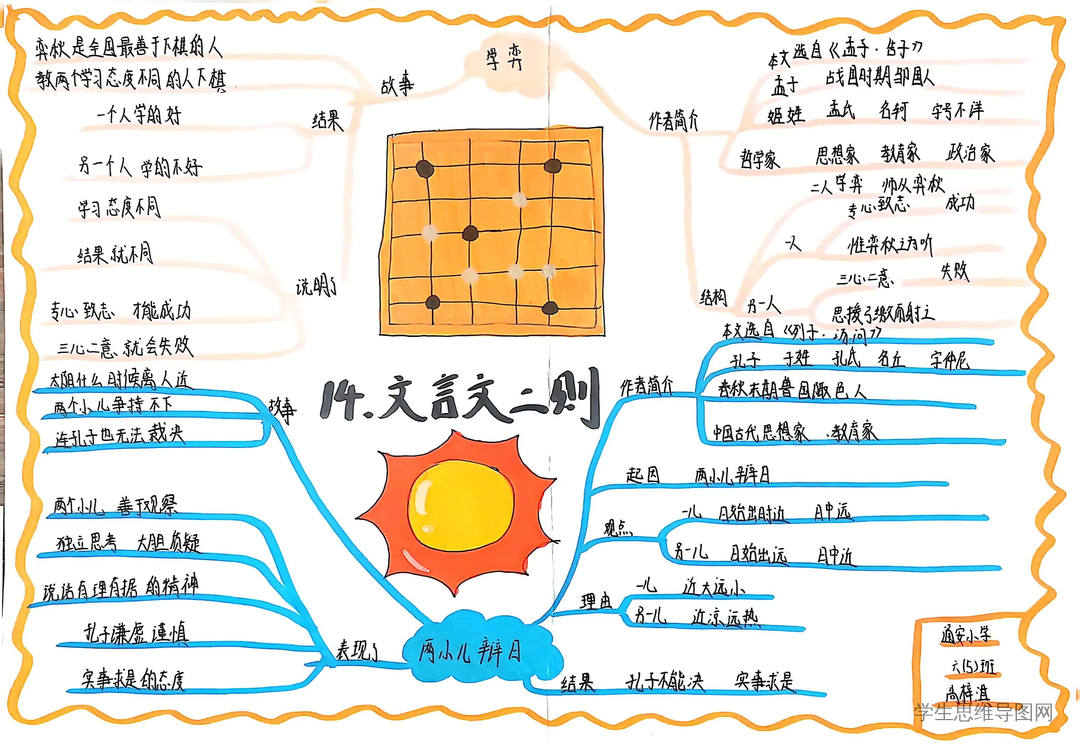 14.文言文二则
学弈
故事
弈秋是全国最善于下棋的人
教两个学习态度不同的人下棋
结果
一个人学的好
另一个人 学的不好
说明了
学习态度不同
结果就不同
专心致志 才能成功
三心二意、就会失败
作者简介
本文选自《孟子·告子》
孟子 战国时期邹国人
姬姓 孟氏 名轲 字号不详
哲学家 思想家 教育家 政治家
结构
二人学弈 师从弈秋
专心致志 成功
一人 惟弈秋之为听
另一人 三心二意、 失败
思援弓缴而射之
两小儿辩日
故事
太阳什么时候离人近
两个小儿争持不下
连孔子也无法裁决
表现了
两个小儿 善于观察
独立思考 大胆质疑
说话有理有据的精神
孔子谦虚谨慎
实事求是的态度
作者简介
本文选自《列子·汤问》
孔子 子姓 孔氏 名丘 字仲尼
春秋末期鲁国陬邑人
中国古代思想家、教育家
起因 两小儿辩日
观点
一儿 日始出时近 日中远
另一儿 日始出远 日中近
理由
一儿 近大远小
另一儿 近凉远热
结果 孔子不能决 实事求是
通安小学
六(5)班
高梓淇
学生思维导图网